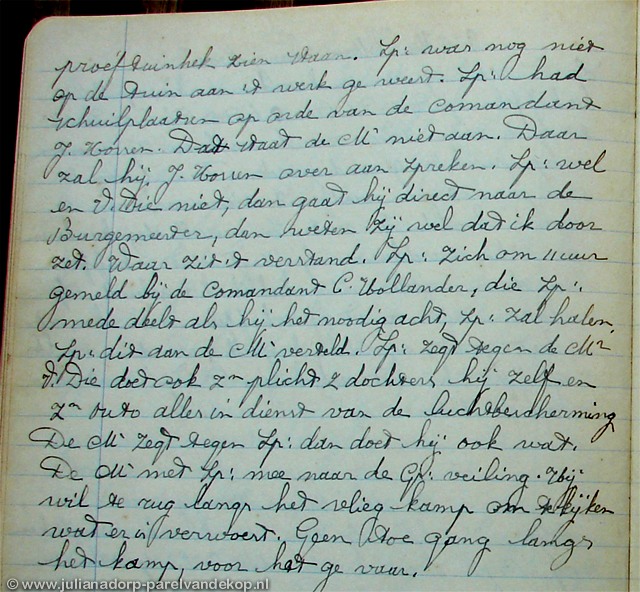 proef tuinhek zien staan. Sp: was nog niet
op de tuin aan 't werk ge weest. Sp: had
schuilplaatsen op orde van de Comandant
J. Hovven. Dat staat de Mr niet aan. Daar
zal hij J. Hovven over aan spreken. Sp: wel
en v. Die niet, dan gaat hij direct naar de
Burgemeester, dan weten zij wel dat ik door
zet. Waar zit 't verstand. Sp: zich om 11 uur
gemeld bij de Comandant C. Hollander, die Sp:
mede deelt als hij het noodig acht, Sp: zal halen.
Sp: dit aan de Mr verteld. Sp: zegt tegen de Mr
v. Die doet ook zn plicht 2 dochters, hij zelf en
zn outo alles in dienst van de luchtbescherming
De Mr zegt tegen Sp: dan doet hij ook wat.
De Mr met Sp: mee naar de Gr: veiling. Hij
wil te rug langs het vlieg kamp om te kijken
wat er is verwoest. Geen toe gang langs
het kamp, voor het ge vaar.
© www.julianadorp-parelvandekop.nl